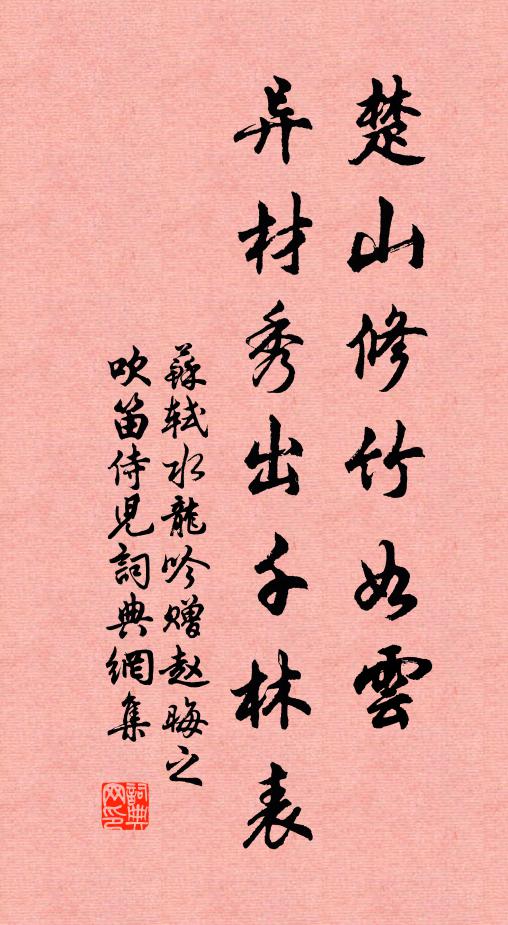 楚山修竹如雲
异材秀出千林表
蘇轼水龍吟赠赵晦之
吹笛侍児詞典網集
詞典
网印